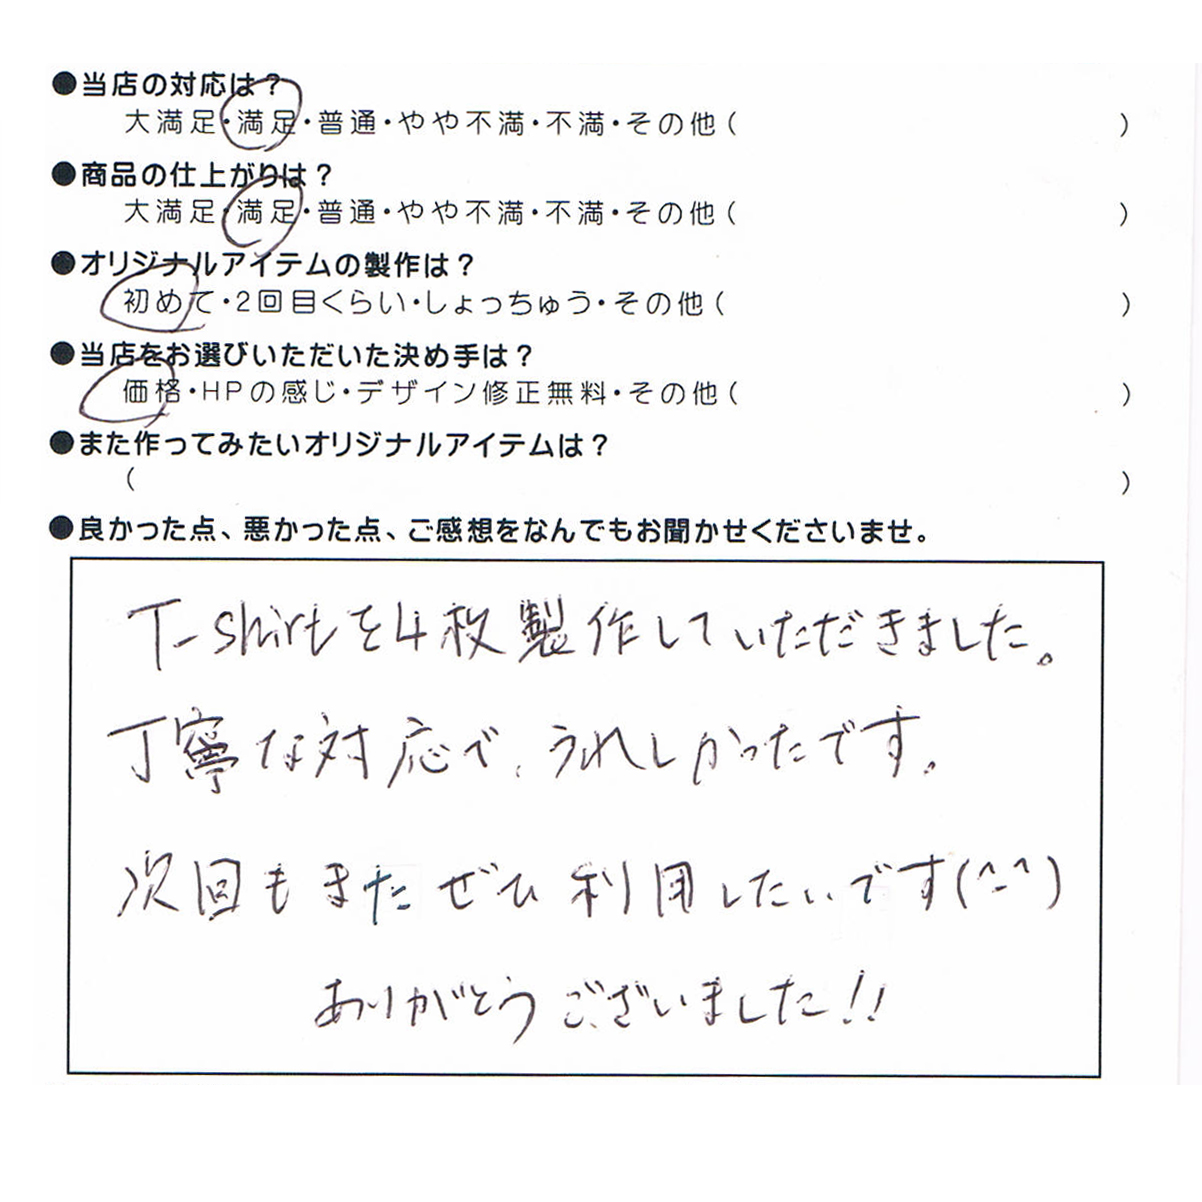 ●当店の対応は？
大満足・満足・普通・やや不満・不満・その他（　）
●商品の仕上がりは？
大満足・満足・普通・やや不満・不満・その他（　）
●オリジナルアイテムの製作は？
初めて・2回目くらい・しょっちゅう・その他（　）
●当店をお選びいただいた決め手は？
価格・HPの感じ・デザイン修正無料・その他（　）
●また作ってみたいオリジナルアイテムは？
（　）
●良かった点、悪かった点、ご感想をなんでもお聞かせくださいませ。
T-shirtを4枚製作していただきました。
丁寧な対応で、うれしかったです。
次回もまたぜひ利用したいです(^-^)
ありがとうございました!!